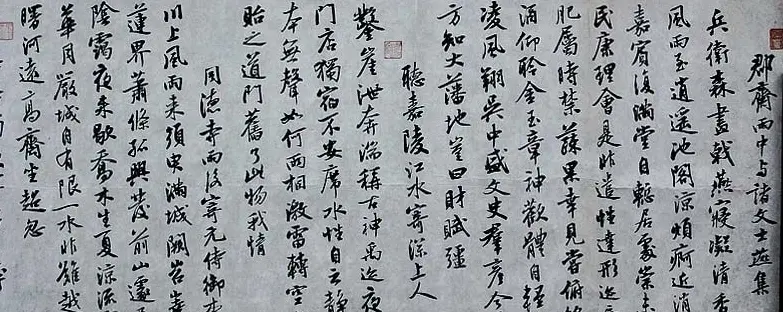 郡齋雨中与諸文士燕集
兵衛森畫戟燕寢凝清香
風雨至逍遥池閣涼煩痾近消
嘉賓復滿堂自慙居處崇未
民康理會是非遣性達形迹
肥屬時禁蔬果幸見嘗俯飲
酒仰聆金玉章神歡體自輕
凌風翔吳中盛文史群彦今
方知大藩地豈曰財賦彊
聽嘉陵江水寄深上人
鑿崖泄奔湍稱古神禹迹夜
門店獨宿不安席水性自云静
本無聲如何兩相激雷轉空
貽之道門舊了此物我情
同德寺雨後寄元侍御李
川上風雨来須臾滿城闕岧嶤
蓮界蕭條孤興發前山遽
陰靄夜来歇喬木生夏涼流
華月嚴城自有限一水非難越
曙河遠高齋坐超忽